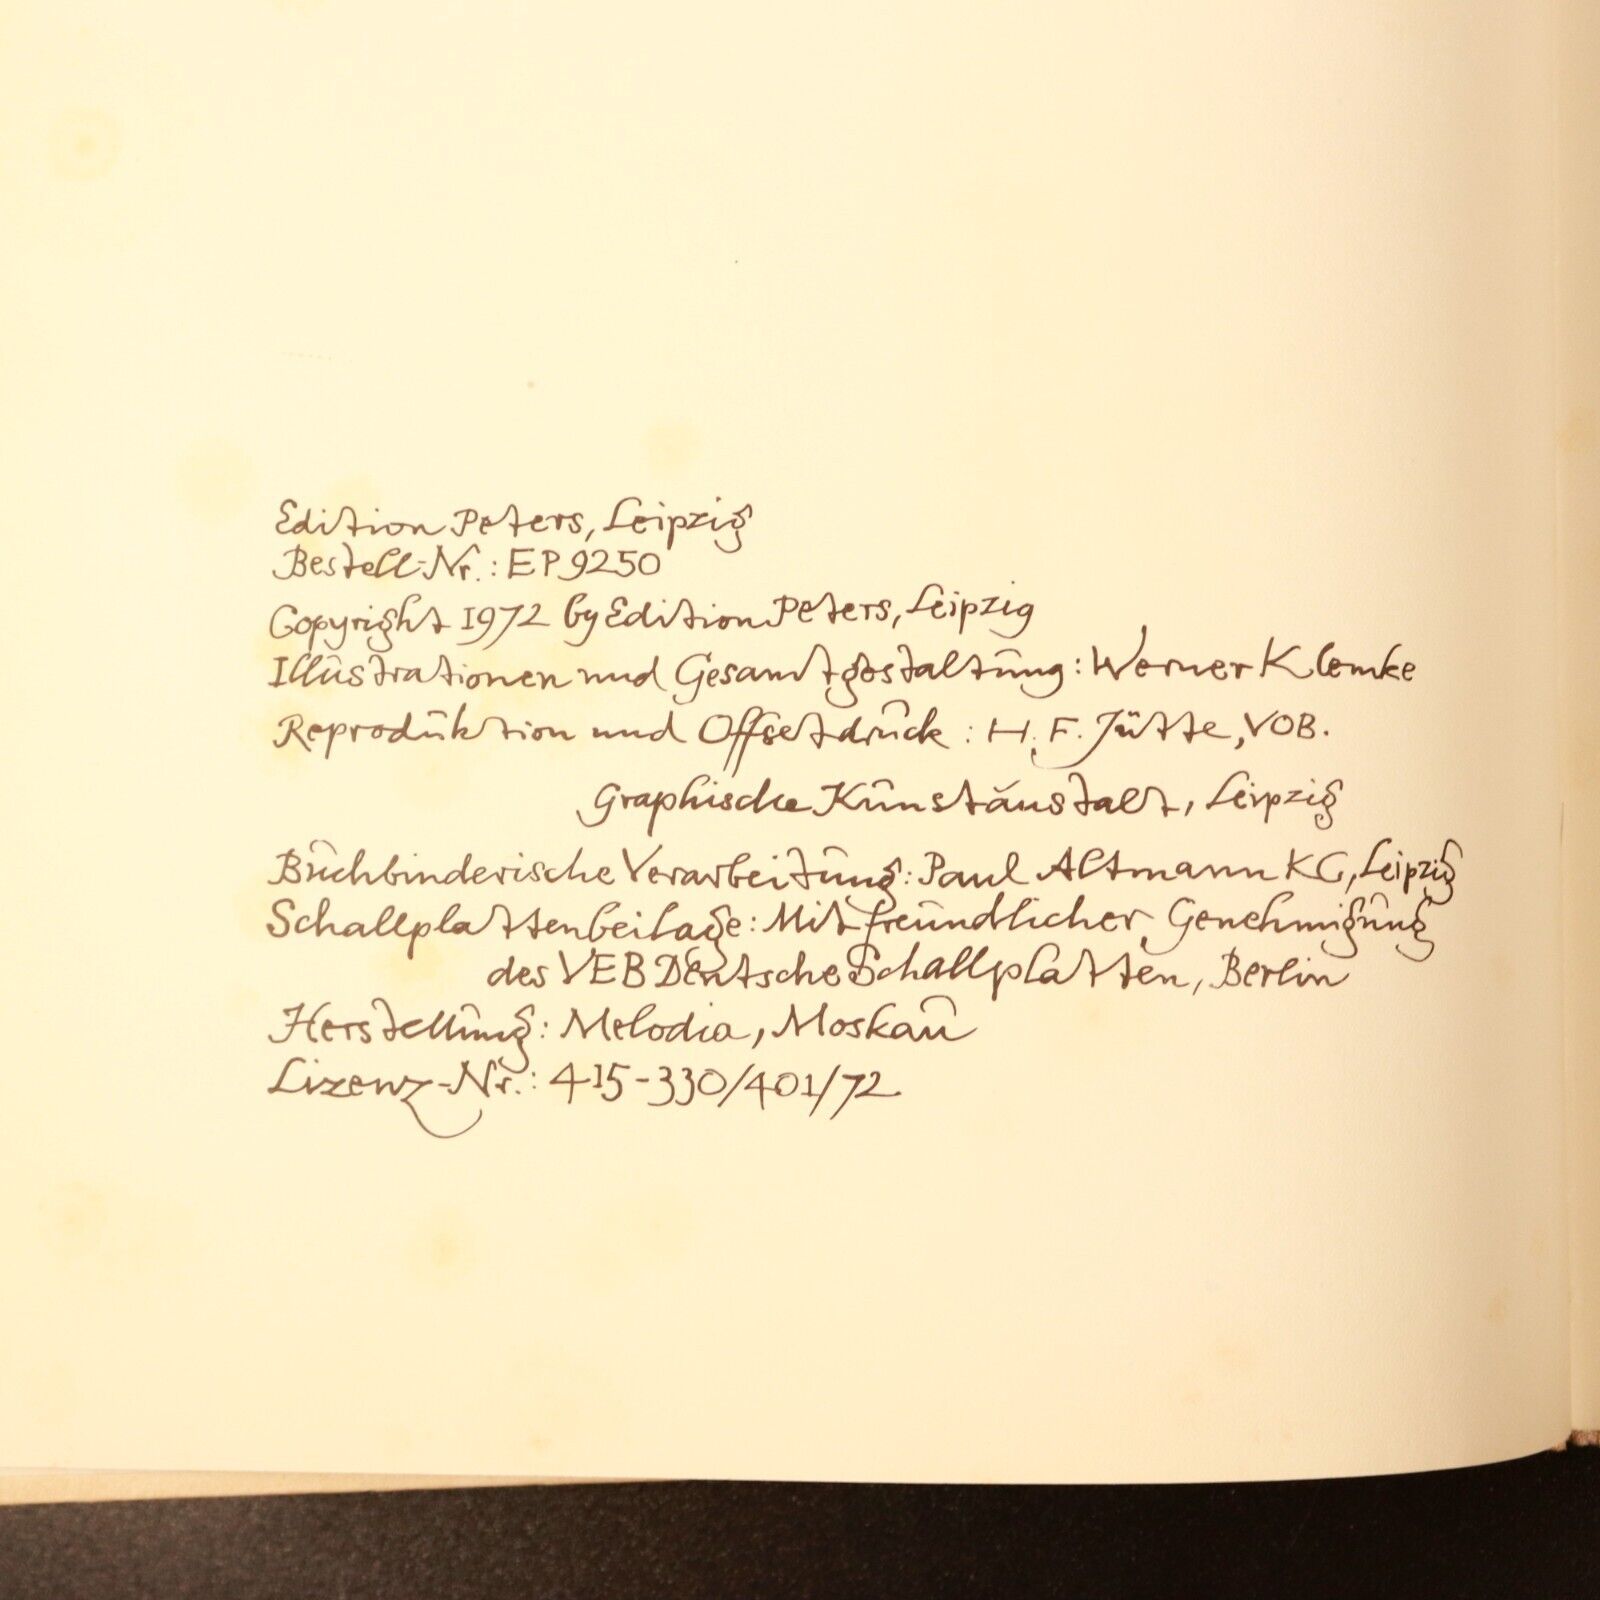 Edition Peters, Leipzig
Bestell-Nr.: EP 9250
Copyright 1972 by Edition Peters, Leipzig
Illustrationen und Gesamtgestaltung: Werner Klemke
Reproduktion und Offsetdruck: H. F. Jütte, VOB.
Graphische Kunstanstalt, Leipzig
Buchbinderische Verarbeitung: Paul Altmann KG, Leipzig
Schallplattenbeilage: Mit freundlicher Genehmigung
des VEB Deutsche Schallplatten, Berlin
Herstellung: Melodia, Moskau
Lizenz-Nr.: 415-330/401/72